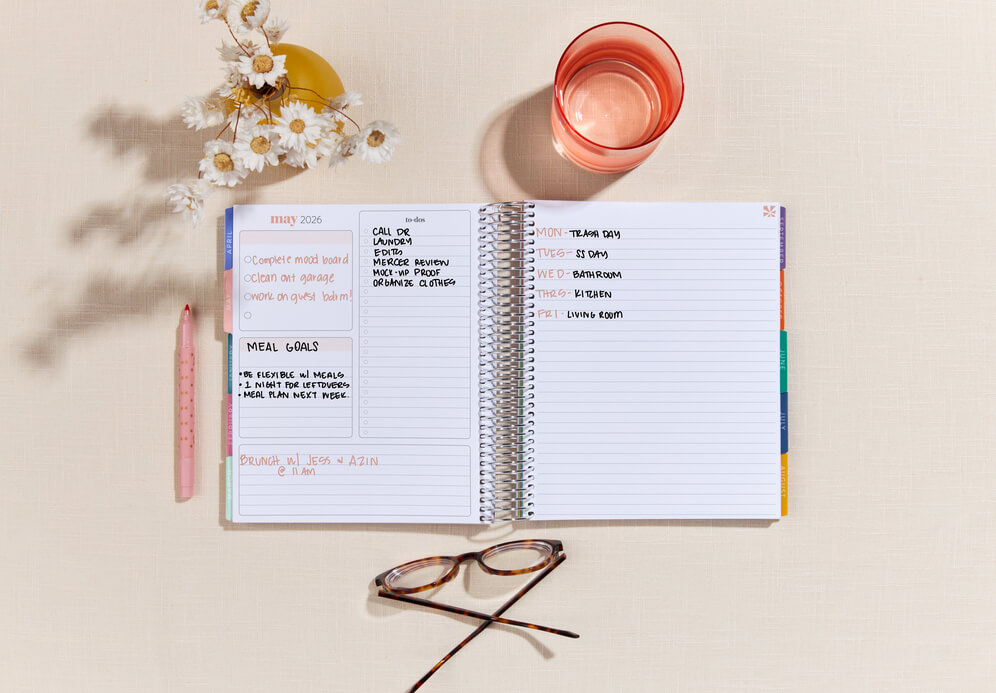 may 2026
Complete mood board
clean out garage
work on guest bdrm!
MEAL GOALS
•BE FLEXIBLE W/ MEALS
•1 NIGHT FOR LEFTOVERS
•MEAL PLAN NEXT WEEK.
BRUNCH W/ JESS & AZIN
@ 11 AM
to-dos
CALL DR
LAUNDRY
EDITS
MERCER REVIEW
MOCK-UP PROOF
ORGANIZE CLOTHES
MON - TRASH DAY
TUES - SS DAY
WED - BATHROOM
THRS - KITCHEN
FRI - LIVING ROOM
APRIL
FEBRUARY
SEPTEMBER
JUNE
JULY
AUGUST